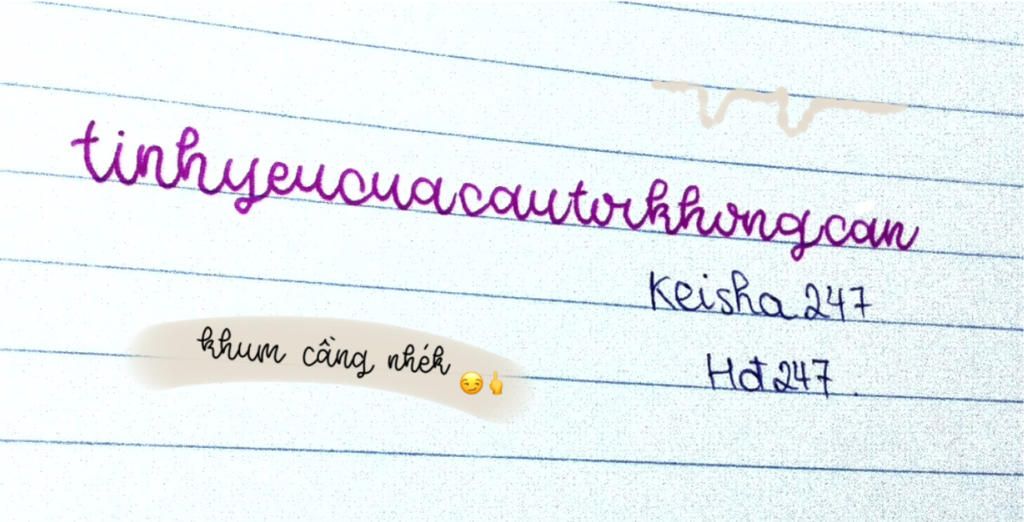 tinhyeucuacautoikhongcan
Keisha 247
khum cầng nhék 😏🖕
Hđ 247